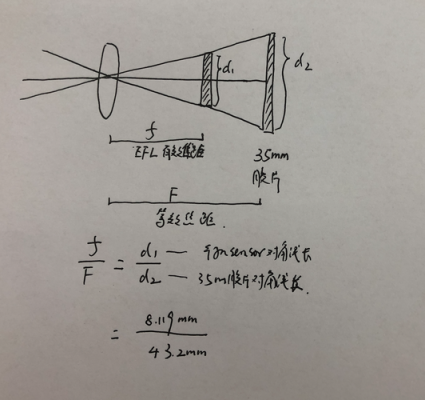 d₁
d₂
f
EFL 有效焦距
35mm
胶片
F
等效焦距.
f/F = d₁/d₂
d₁ — 手机sensor对角线长
d₂ — 35m胶片对角线长.
= 8.119mm/43.2mm